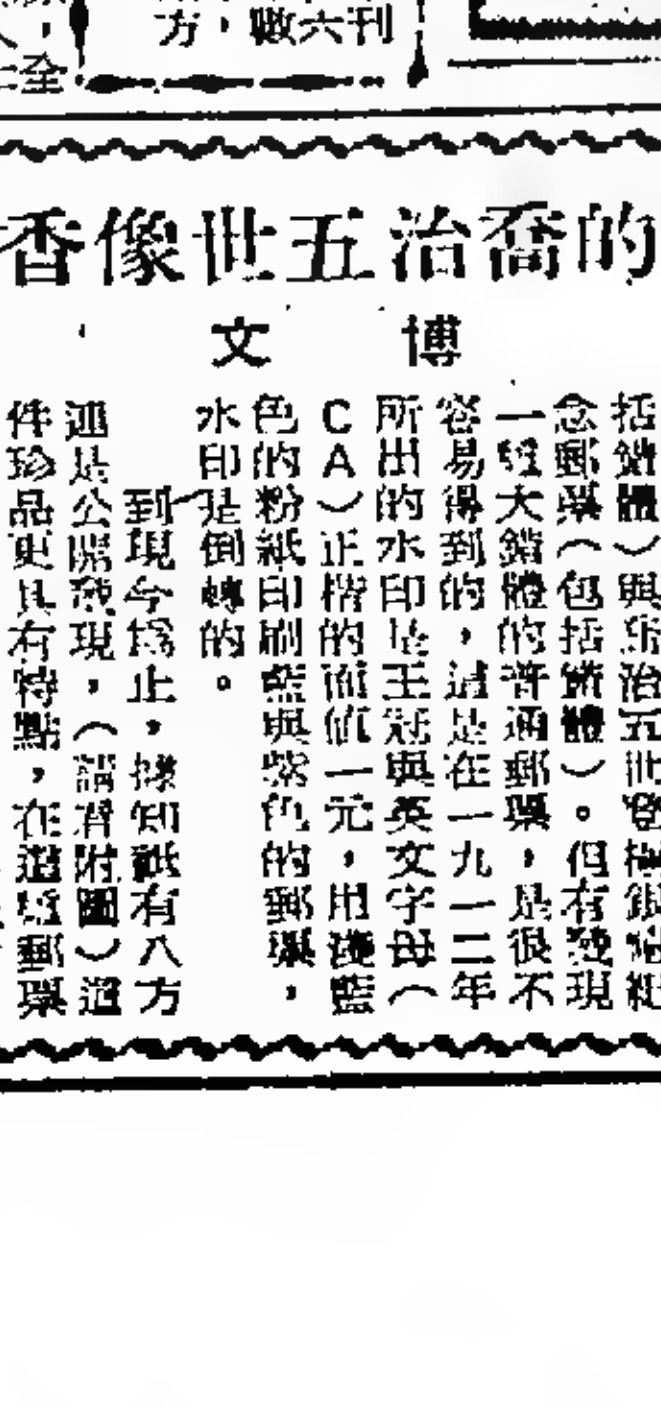 方，數六刊
全
香像世五治喬的
文博
括錯體）與喬治五世登極銀禧紀
念郵票（包括錯體）。但有發現
一種大錯體的普通郵票，是很不
容易得到的，這是在一九一二年
所出的水印是王冠與英文字母（
CA）正楷的面值一元，用淺藍
色的粉紙印刷藍與紫色的郵票，
水印是倒轉的。
到現今為止，據知祇有八方
連是公開發現，（請看附圖）這
件珍品更具有特點，在這短郵票